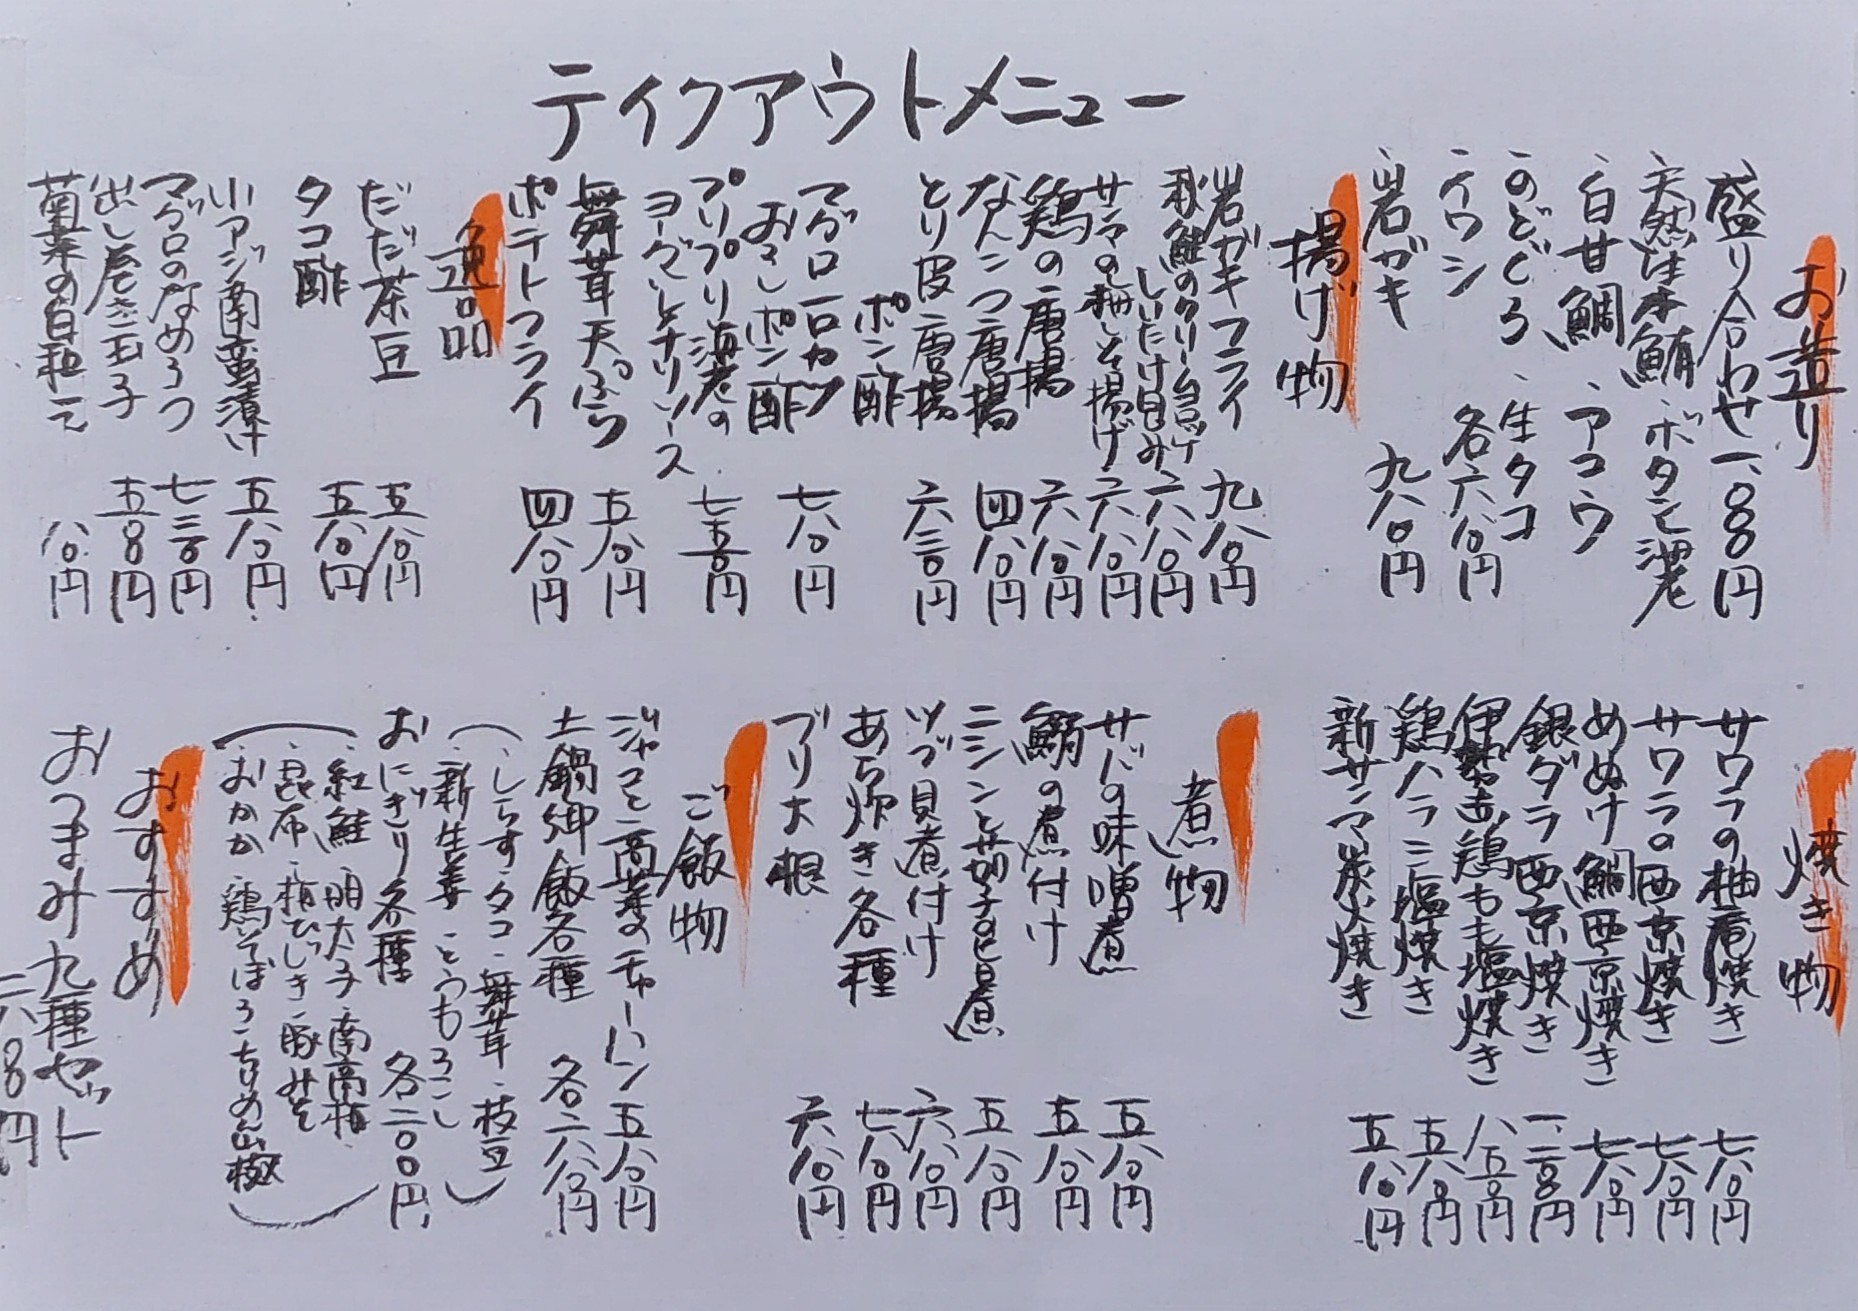 ティクアウトメニュー
お造り
盛り合わせ 一、八〇〇円
・天然生本鮪 ・ボタン海老
・白甘鯛 ・アコウ
・のどぐろ ・生タコ
・イワシ 各六八〇円
・岩ガキ 九八〇円
揚げ物
岩ガキフライ 九八〇円
秋鮭のクリームコロッケ 六八〇円
しいたけ包み
サンマの梅しそ揚げ 六八〇円
鶏の唐揚 六八〇円
なんこつ唐揚 四八〇円
とり皮唐揚 六三〇円
ポン酢
マグロ一口カツ 七八〇円
おろしポン酢
プリプリ海老の 七五〇円
ヨーグルトチリソース
舞茸天ぷら 五八〇円
ポテトフライ 四八〇円
逸品
だだ茶豆 五八〇円
タコ酢 五八〇円
小アジ南蛮漬け 五八〇円
マグロのなめろう 七三〇円
出し巻き玉子 五五〇円
菊菜の白和え 八〇円
焼き物
サワラの柚庵焼き 七八〇円
サワラの西京焼き 七八〇円
めぬけ鯛西京焼き 七八〇円
銀ダラ西京焼き 一、二八〇円
伊勢赤鶏もも塩焼き 八五〇円
鶏ハラミ塩焼き 五八〇円
新サンマ炭火焼き 五八〇円
煮物
サバの味噌煮 五八〇円
鰯の煮付け 五八〇円
ニシンと茄子の旨煮 五八〇円
ツブ貝煮付け 六八〇円
あら炊き各種 七八〇円
ブリ大根 六八〇円
ご飯物
ジャコと高菜のチャーハン 五八〇円
土鍋御飯各種 各二八〇円
（・しらす・タコ・舞茸・枝豆
・新生姜・とうもろこし）
おにぎり各種 各二〇〇円
（・紅鮭・明太子・南高梅
・昆布・梅ひじき・豚みそ
・おかか・鶏そぼろ・ちりめん山椒）
おすすめ
おつまみ九種セット